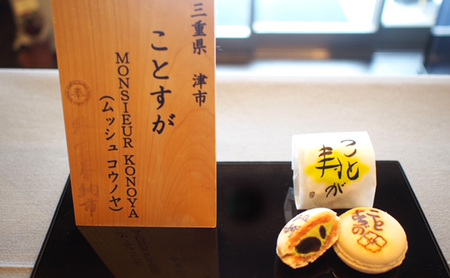 三重県 津市
ことすが
MONSIEUR KONOYA
(ムッシュコウノヤ)
こと
すが